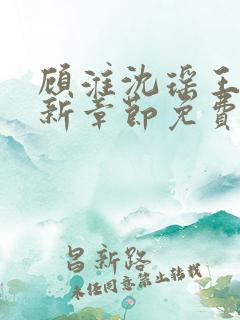 顾淮沈瑶王
新章節免費
昌新路
未经同意禁止转载